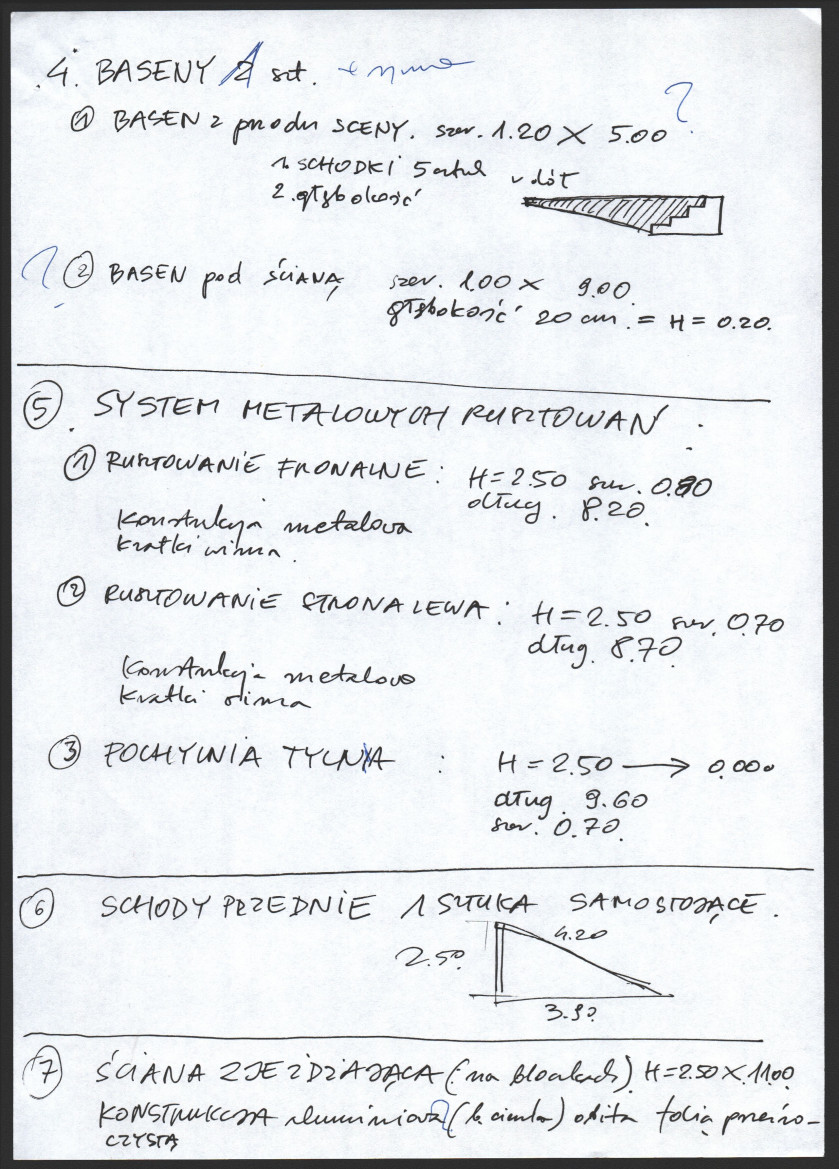 4. BASENY 1 szt. + rynna
?
① BASEN z przodu SCENY. szer. 1.20 X 5.00
1. SCHODKI 5 sztuk w dół
2. głębokość
? ② BASEN pod ŚCIANĄ szer. 1.00 x 9.00
głębokość 20 cm. = H = 0.20.
⑤. SYSTEM METALOWYCH RUSZTOWAŃ :
① RUSZTOWANIE FRONALNE : H = 2.50 szer. 0.80
dług. 8.20.
Konstrukcja metalowa
Kratki wima.
② RUSZTOWANIE STRONA LEWA : H = 2.50 szer. 0.70
dług. 8.70.
Konstrukcja metalowa
Kratki wima
③ POCHYLNIA TYLNA : H = 2.50 → 0.000
dług. 9.60
szer. 0.70.
⑥ SCHODY PRZEDNIE 1 SZTUKA SAMOSTOJĄCE.
4.20
2.50
3.90
⑦ ŚCIANA ZJEŻDŻAJĄCA (na bloczkach) H = 2.50 X 11.00
KONSTRUKCJA aluminiowa ? (b. cienka) obita folią przeźro-
CZYSTĄ